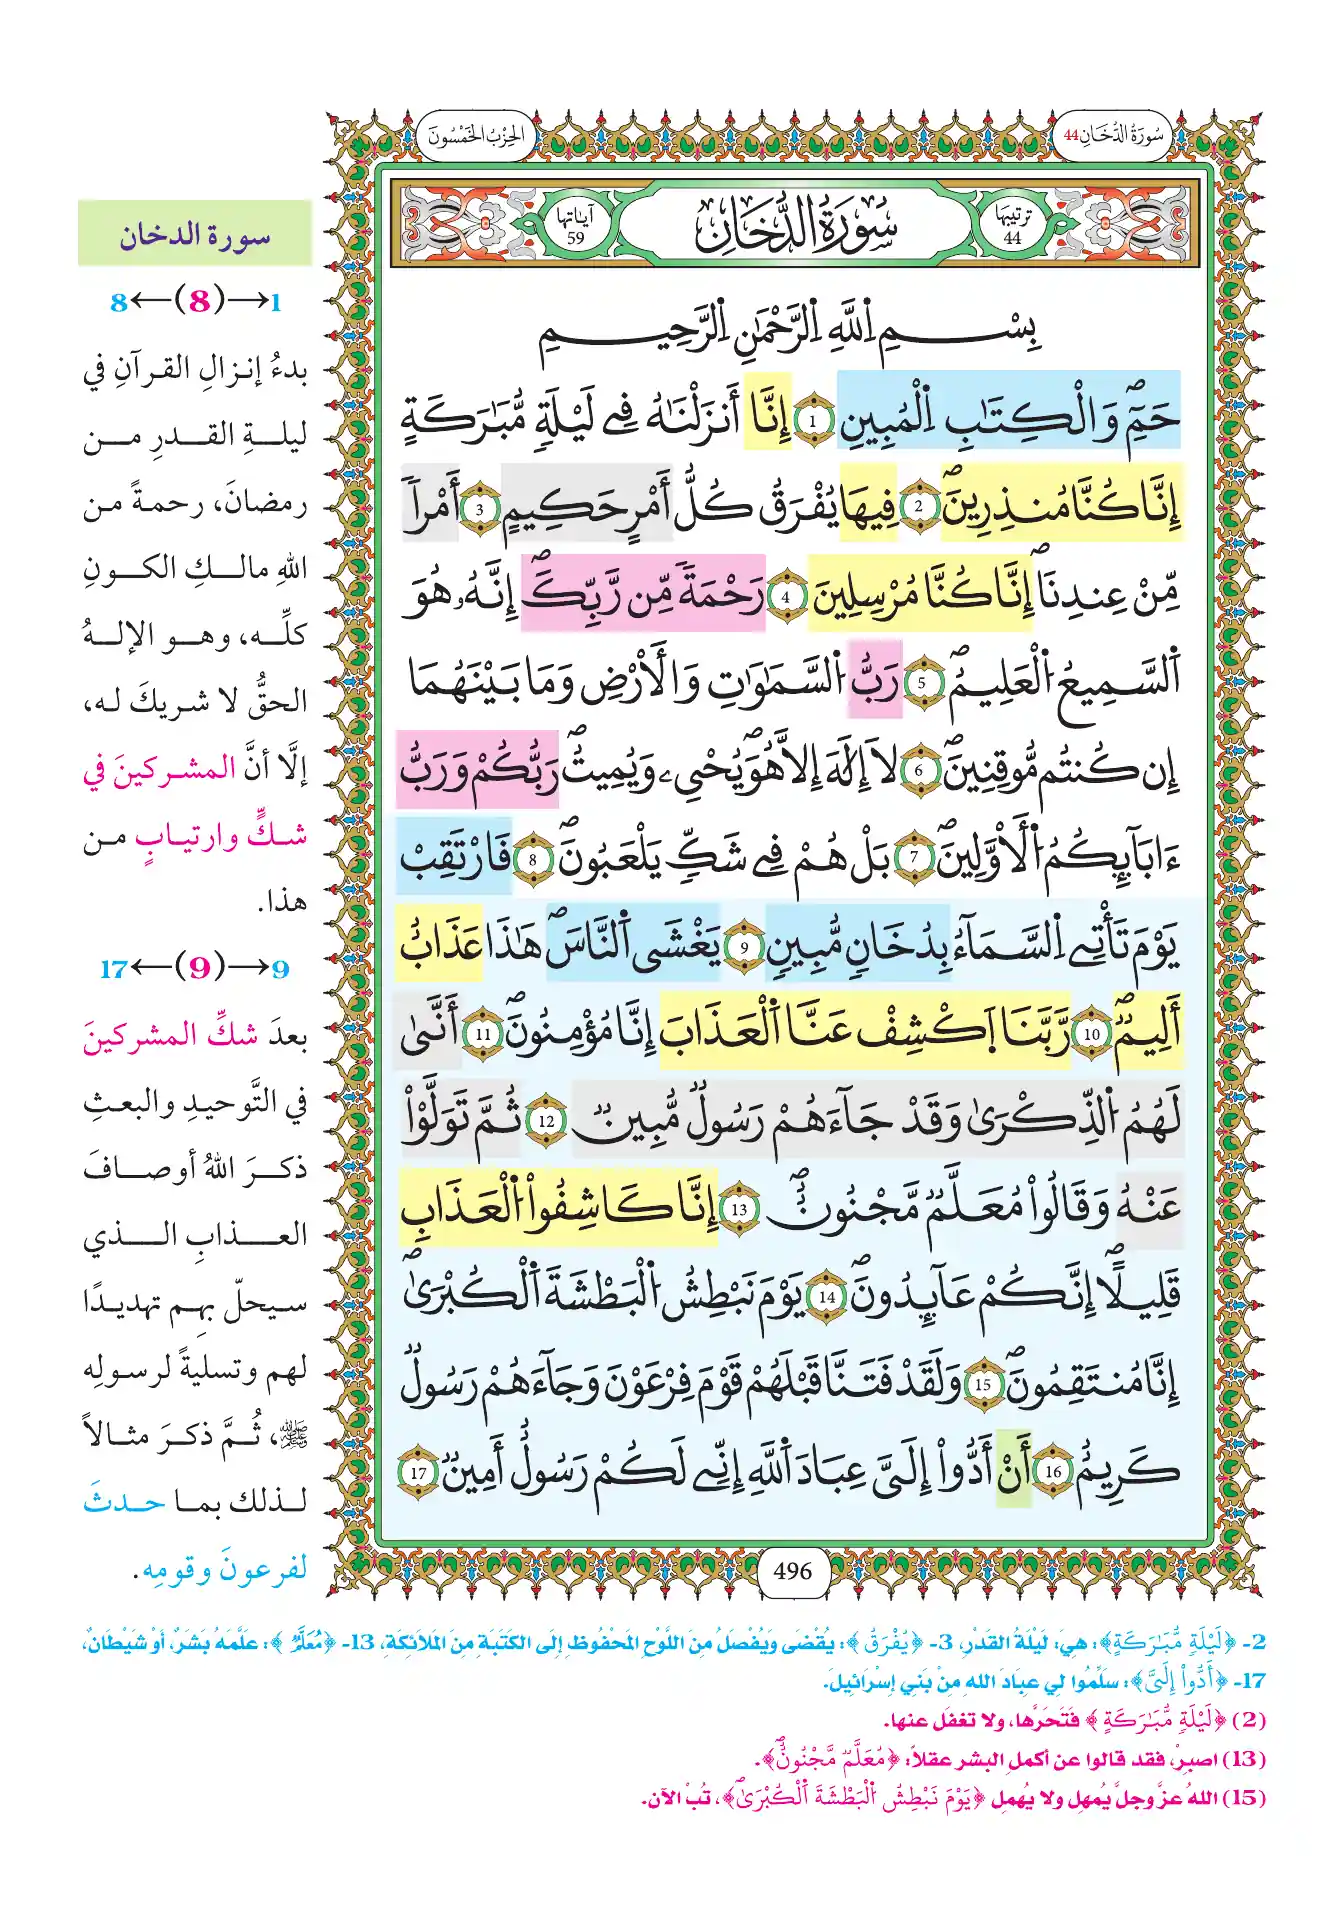 سُورَةُ الدُّخَانِ 44
الحِزْبُ الخَمْسُونَ
ترتيبها
44
سُورَةُ الدُّخَانِ
آياتها
59
بِسْمِ اِ۬للَّهِ اِ۬لرَّحْمَٰنِ اِ۬لرَّحِيمِ
حَمِٓۖ وَالْكِتَٰبِ اِ۬لْمُبِينِ 1 إِنَّا أَنزَلْنَٰهُ فِے لَيْلَةٖ مُّبَٰرَكَةٍ
اِنَّا كُنَّا مُنذِرِينَۖ 2 فِيهَا يُفْرَقُ كُلُّ أَمْرٍ حَكِيمٍ 3 اَمْراٗ
مِّنْ عِندِنَاۖ إِنَّا كُنَّا مُرْسِلِينَ 4 رَحْمَةٗ مِّن رَّبِّكَۖ إِنَّهُۥ هُوَ
اَ۬لسَّمِيعُ اُ۬لْعَلِيمُۖ 5 رَبُّ اُ۬لسَّمَٰوَٰتِ وَالْأَرْضِ وَمَا بَيْنَهُمَا
إِن كُنتُم مُّوقِنِينَۖ 6 لَا إِلَٰهَ إِلَّا هُوَۖ يُحْيِۦ وَيُمِيتُۖ رَبُّكُمْ وَرَبُّ
ءَابَآئِكُمُ اُ۬لْأَوَّلِينَۖ 7 بَلْ هُمْ فِے شَكّٖ يَلْعَبُونَۖ 8 فَارْتَقِبْ
يَوْمَ تَأْتِے اِ۬لسَّمَآءُ بِدُخَانٖ مُّبِينٖ 9 يَغْشَى اَ۬لنَّاسَۖ هَٰذَا عَذَابٌ
أَلِيمٌۖ 10 رَّبَّنَا اَ۪كْشِفْ عَنَّا اَ۬لْعَذَابَ إِنَّا مُؤْمِنُونَۖ 11 أَنَّىٰ
لَهُمُ اُ۬لذِّكْرَىٰ وَقَدْ جَآءَهُمْ رَسُولٞ مُّبِينٞ 12 ثُمَّ تَوَلَّوْاْ
عَنْهُ وَقَالُواْ مُعَلَّمٞ مَّجْنُونٌۖ 13 إِنَّا كَاشِفُواْ اُ۬لْعَذَابِ
قَلِيلاًۖ اِنَّكُمْ عَآئِدُونَۖ 14 يَوْمَ نَبْطِشُ اُ۬لْبَطْشَةَ اَ۬لْكُبْرَىٰۖ
إِنَّا مُنتَقِمُونَۖ 15 وَلَقَدْ فَتَنَّا قَبْلَهُمْ قَوْمَ فِرْعَوْنَ وَجَآءَهُمْ رَسُولٞ
كَرِيمٌ 16 أَنْ أَدُّواْ إِلَىَّ عِبَادَ اَ۬للَّهِ إِنِّے لَكُمْ رَسُولٌ أَمِينٞ 17
496
سورة الدخان
1→(8)←8
بدءُ إنزالِ القرآنِ في
ليلةِ القدرِ من
رمضانَ، رحمةً من
اللهِ مالكِ الكونِ
كلِّه، وهو الإلهُ
الحقُّ لا شريكَ له،
إلَّا أنَّ المشركينَ في
شكٍّ وارتيابٍ من
هذا.
9→(9)←17
بعدَ شكِّ المشركينَ
في التَّوحيدِ والبعثِ
ذكرَ اللهُ أوصافَ
العذابِ الذي
سيحلّ بِهِم تهديدًا
لهم وتسليةً لرسولِه
ﷺ، ثُمَّ ذكرَ مثالاً
لذلك بما حدثَ
لفرعونَ وقومِه.
2- ﴿لَيْلَةٖ مُّبَٰرَكَةٍ﴾: هِيَ: لَيْلَةُ القَدْرِ، 3- ﴿يُفْرَقُ﴾: يُقْضَى وَيُفْصَلُ مِنَ اللَّوْحِ المَحْفُوظِ إِلَى الكَتَبَةِ مِنَ المَلَائِكَةِ، 13- ﴿مُعَلَّمٞ﴾: عَلَّمَهُ بَشَرٌ، أوْ شَيْطَانٌ،
17- ﴿أَدُّواْ إِلَىَّ﴾: سَلِّمُوا لِي عِبَادَ اللهِ مِنْ بَنِي إِسْرَائِيلَ.
(2) ﴿لَيْلَةٖ مُّبَٰرَكَةٍ﴾ فَتَحَرَّها، ولا تغفَل عنها.
(13) اصبرْ، فقد قالوا عن أكملِ البشر عقلاً: ﴿مُعَلَّمٞ مَّجْنُونٌۖ﴾.
(15) اللهُ عزَّ وجلَّ يُمهِل ولا يُهمِل ﴿يَوْمَ نَبْطِشُ اُ۬لْبَطْشَةَ اَ۬لْكُبْرَىٰۖ﴾، تُبْ الآن.